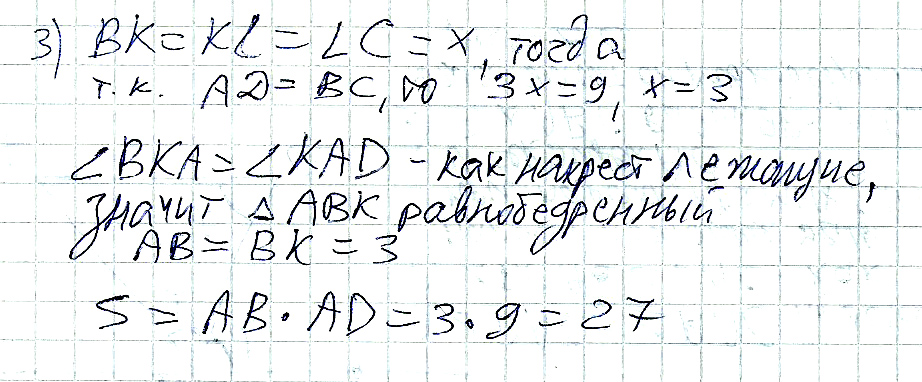 3) BK = KL = LC = x, тогда
т.к. AD = BC, то 3x = 9, x = 3
∠BKA = ∠KAD - как накрест лежащие,
значит △ABK равнобедренный
AB = BK = 3
S = AB · AD = 3 · 9 = 27